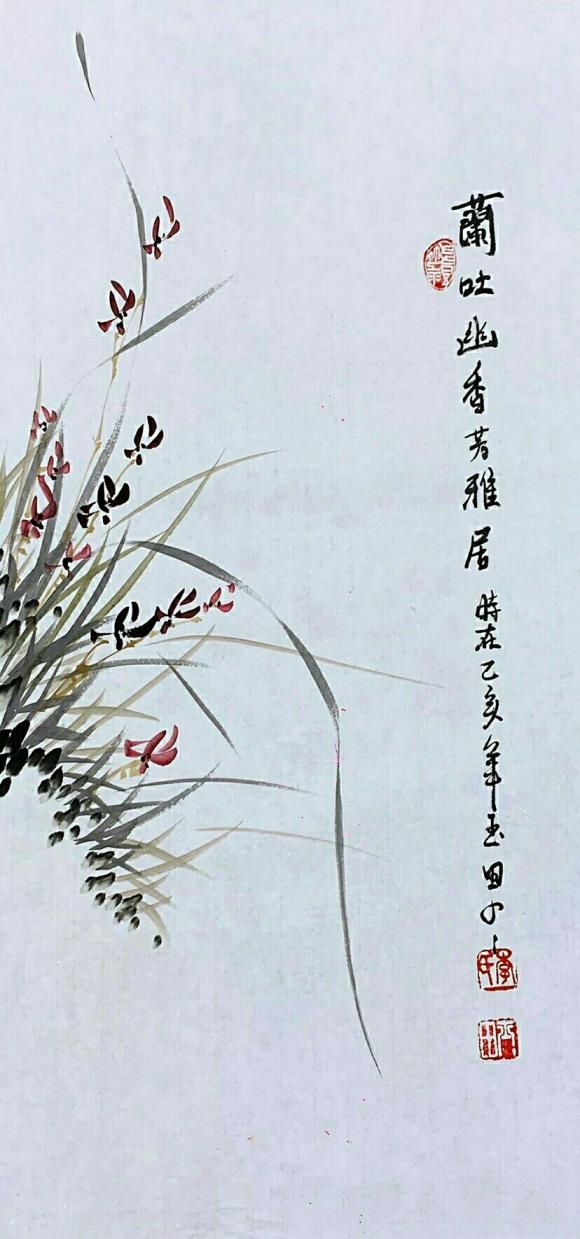 蘭吐幽香芳雅居
時在己亥年玉田